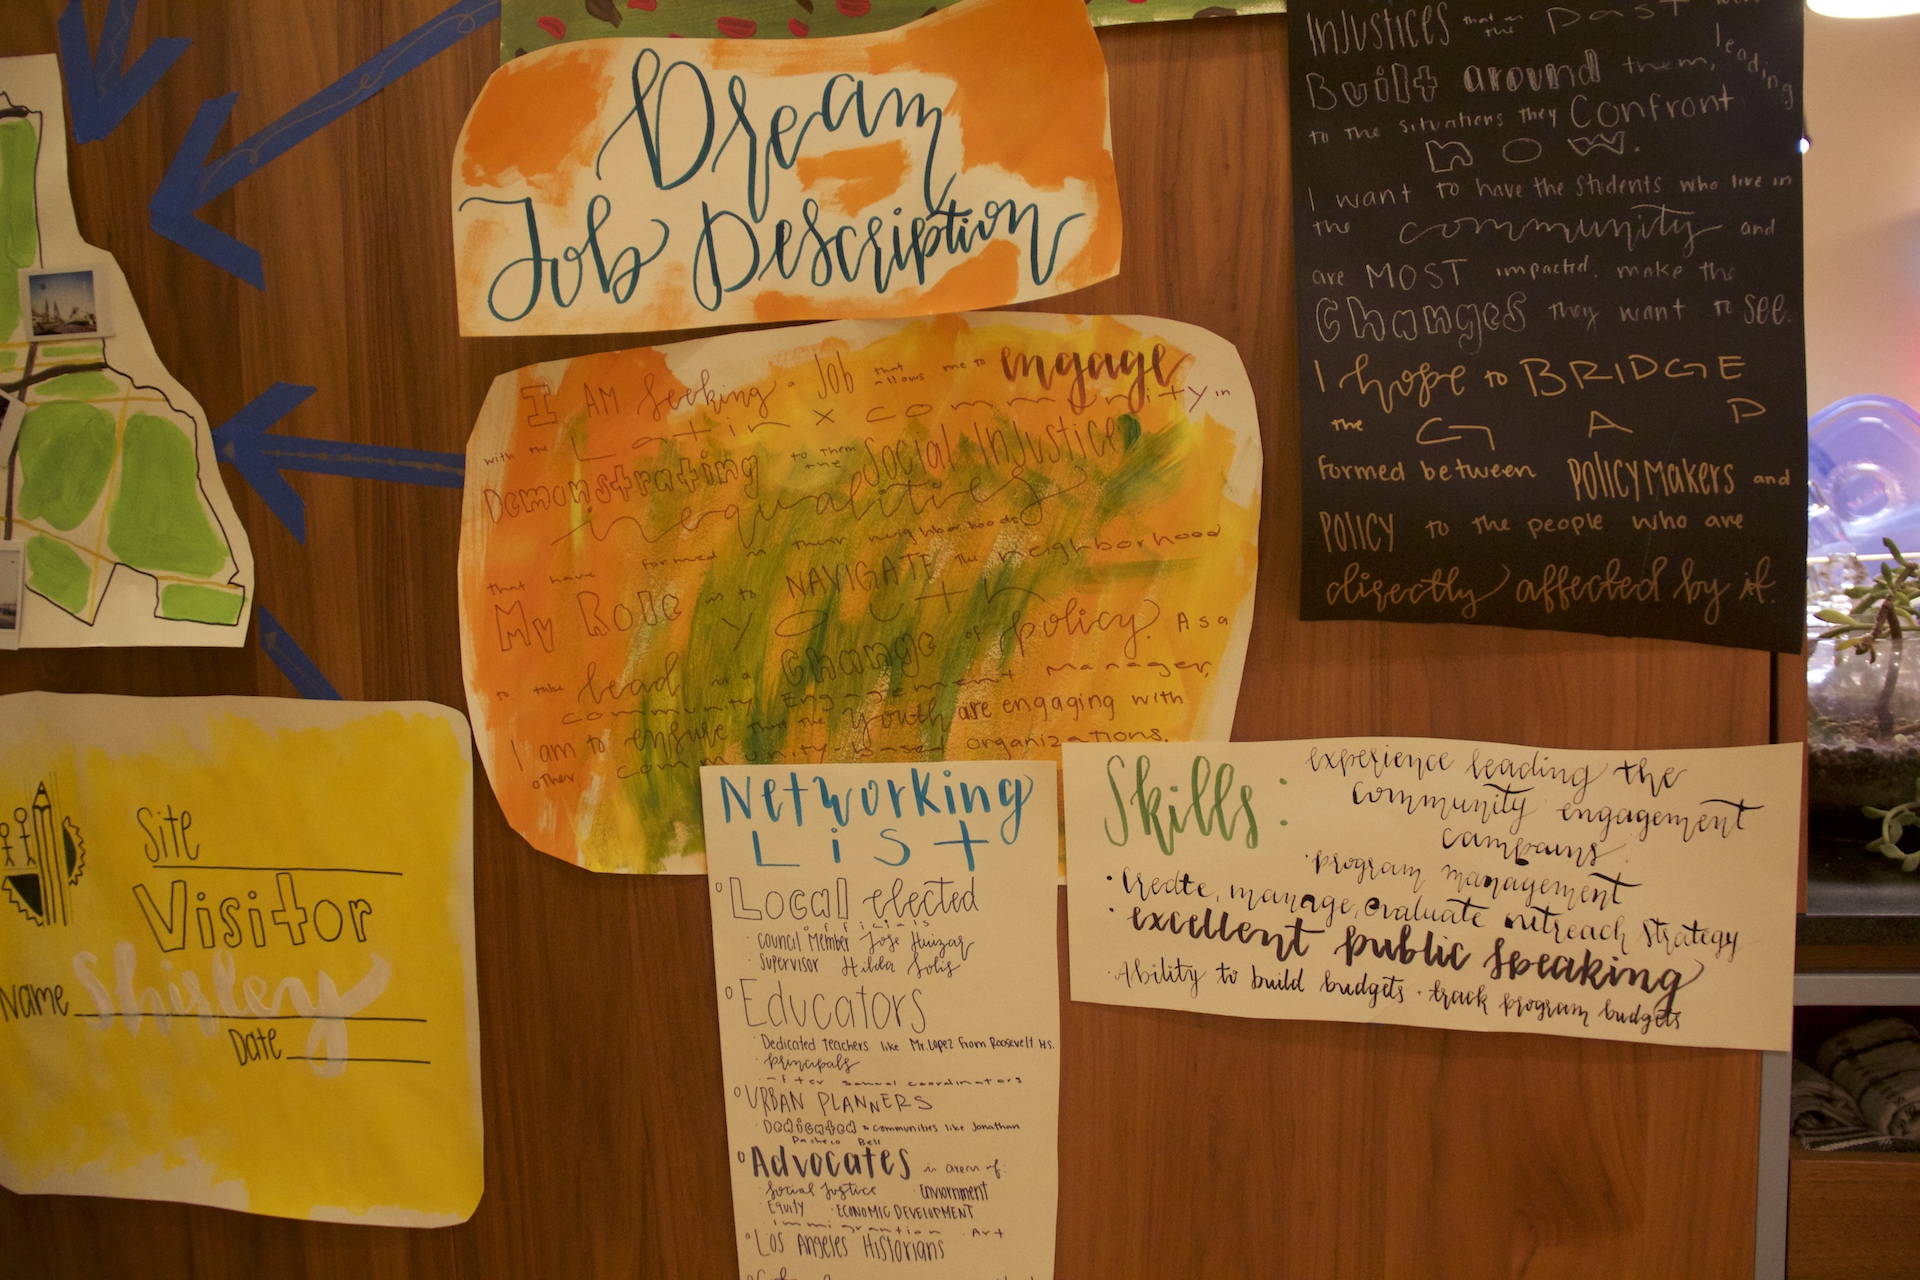 Dream
Job Description
I AM Seeking a Job that allows me to engage
with the Latinx community in
Demonstrating to them the Social Injustice
inequalities
that have formed in their neighborhoods
My Role is to NAVIGATE the neighborhood
youth
to take lead in a change of policy. As a
community Engagement Manager,
I am to ensure that the youth are engaging with
other community-based organizations.
INJUSTICES that in the past
Built around them, leading
to the situations they Confront
NOW.
I want to have the students who live in
the community and
are MOST impacted. make the
Changes they want to SEE.
I hope to BRIDGE
the GAP
formed between POLICYMAKERS and
POLICY to the people who are
directly affected by it.
Site
Visitor
Name Shirley
Date
Networking
List
Local elected
officials
Council Member Jose Huizar
Supervisor Hilda Solis
Educators
Dedicated teachers like Mr. Lopez from Roosevelt H.S.
principals
after school coordinators
URBAN PLANNERS
Dedicated communities like Jonathan
Pacheco Bell
Advocates in areas of:
Social Justice · Enviornment
Equity · ECONOMIC DEVELOPMENT
· Immigrantion · Art
Los Angeles Historians
Skills: experience leading the
community engagement
campains.
· program management
· Create, manage, evaluate outreach strategy
· excellent public speaking
· Ability to build budgets · track program budgets